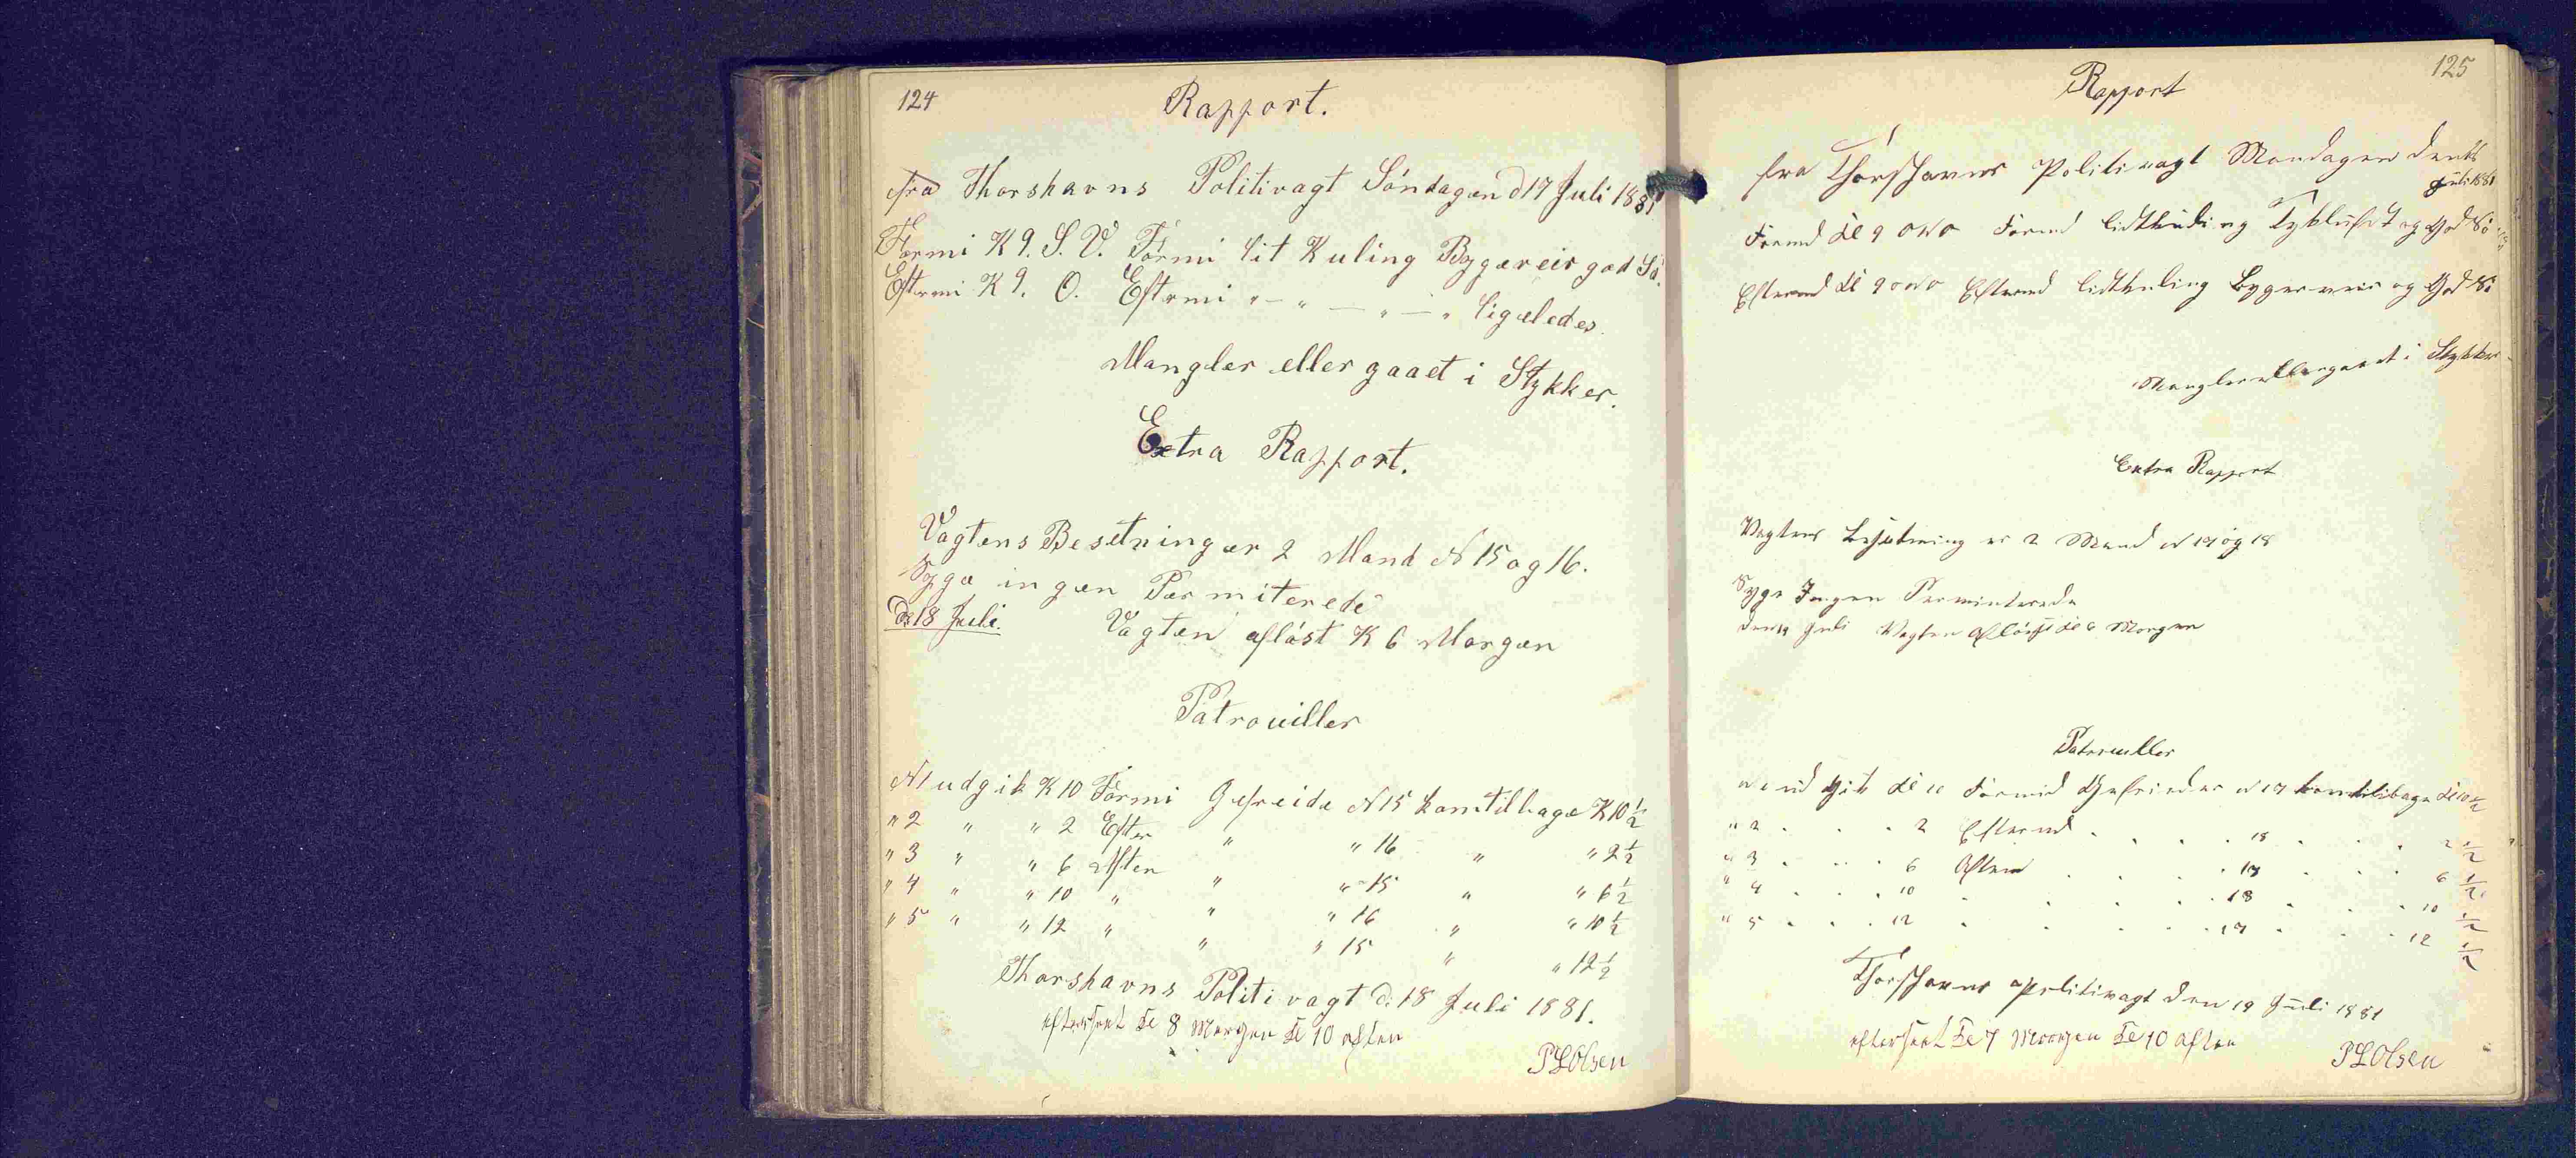 124
Rapport.
fra Thorshavns Politivagt Söndagen d 17 Juli 1881
Formi K 9. S. V. Formi lit Kuling Bygæveir god Sö.
Eftermi K 9. O. Eftrmi " — " — " — " ligæledes.
Mangler eller gaaet i Stykker.
Extra Rapport.
Vagtens Besetning er 2 Mand N 15 og 16.
Syge ingen Permiterede
D. 18 Juli. Vagten aflöst K 6 Morgen
Patrouiller
N 1 udgik K 10 Formi Gefreide N 15 kom tilbage K 10 1/2
" 2 " " 2 Efter " " 16 " " 2 1/2
" 3 " " 6 Aften " " 15 " " 6 1/2
" 4 " " 10 " " " 16 " " 10 1/2
" 5 " " 12 " " " 15 " " 12 1/2
Thorshavns Politivagt d: 18 Juli 1881.
efterseet Kl 8 Morgen Kl 10 aften
P L Olsen
125
Rapport
fra Thorshavns Politivagt Mandagen den 18
Juli 1881
Formd Kl 9 ONO Formd lidt kuling Tykluft og God Sö
Eftermd Kl 9 ONO Eftermd lidt kuling Bygerveir og God Sö
Mangler eller gaaet i Stykker
Extra Rapport
Vagtens Besetning er 2 Mand N 17 og 18
Syge Ingen Perminterede
den 19 Juli Vagten Aflöst Kl 6 Morgen
Patrouller
N 1 udgik Kl 10 Formid Gefrieder N 17 kom tilbage Kl 10 1/2
" 2 . . . 2 Eftermd . . . 18 . . . 2 1/2
" 3 . . . 6 Aften . . . 17 . . . 6 1/2
" 4 . . . 10 . . . 18 . . . 10 1/2
" 5 . . . 12 . . . 17 . . . 12 1/2
Thorshavns Politivagt den 19 Juli 1881
efterseet Kl 7 Morgen Kl 10 aften
P L Olsen